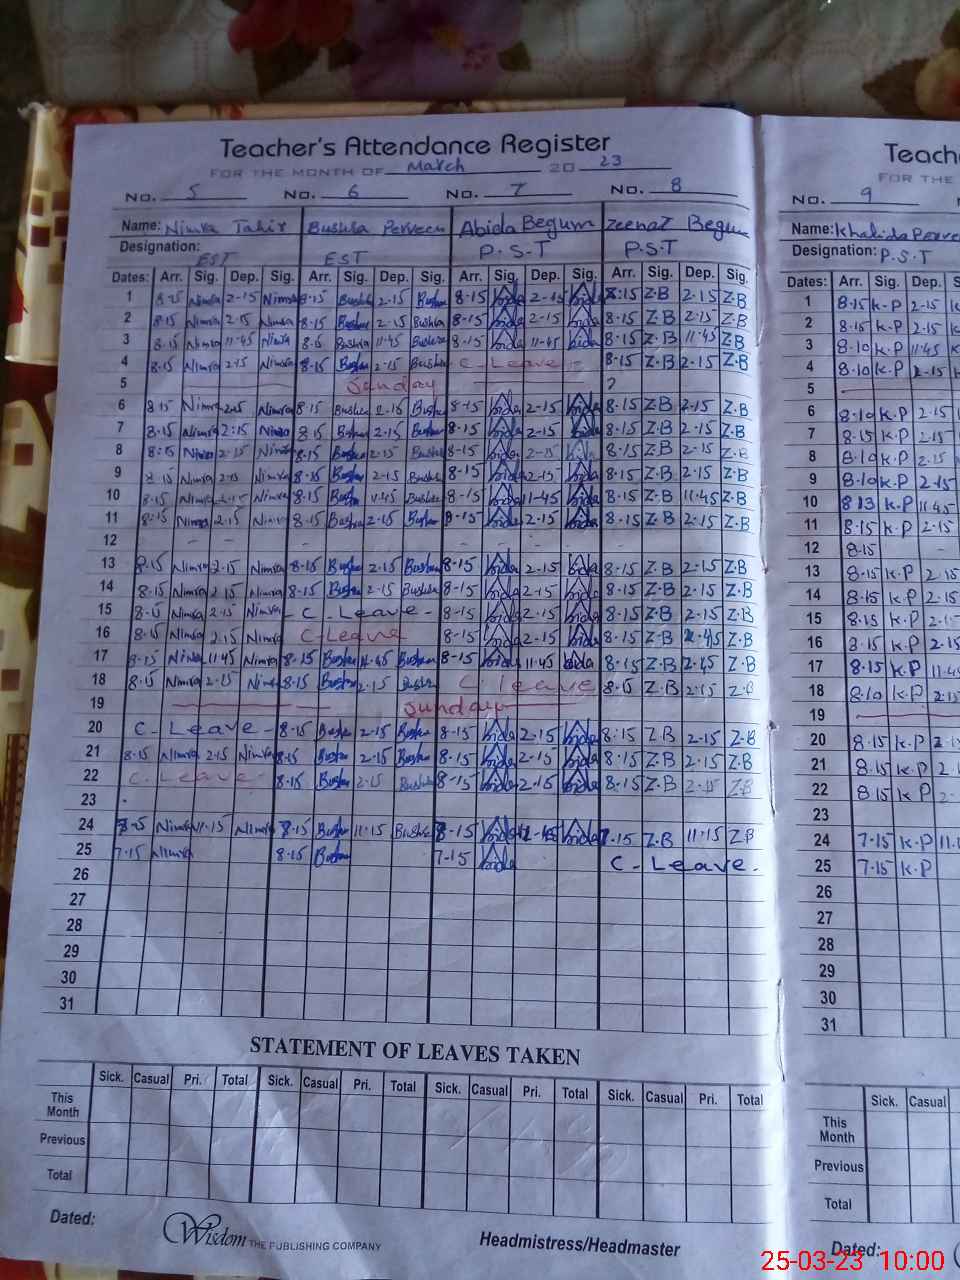 Teacher's Attendance Register Teach
FOR THE MONTH OF March 20 23 FOR THE
No. 5 No. 6 No. 7 No. 8 No. 9
Name: Nimra Tahir Bushra Perveen Abida Begum Zeenat Begum Name: Khalida
Designation: EST EST P.S.T P.S.T Designation: P.S.T
Dates: Arr. Sig. Dep. Sig. Arr. Sig. Dep. Sig. Arr. Sig. Dep. Sig. Arr. Sig. Dep. Sig. Dates: Arr. Sig. Dep.
1 8-15 Nimra 2-15 Nimra 8-15 Bushra 2-15 Bushra 8-15 bida 2-15 bida 8:15 Z.B 2.15 Z.B 1 8.15 K.P 2.15 K
2 8.15 Nimra 2.15 Nimra 8-15 Bushra 2.15 Bushra 8-15 bida 2-15 bida 8.15 Z.B 2.15 Z.B 2 8.15 K.P 2.15 K
3 8.15 Nimra 11.45 Nimra 8.15 Bushra 11.45 Bushra 8-15 bida 11-45 bida 8.15 Z.B 11.45 Z.B 3 8-10 K.P 11.45 K
4 8.15 Nimra 2.15 Nimra 8-15 Bushra 2.15 Bushra C-Leave 8.15 Z.B 2.15 Z.B 4 8-10 K.P 2.15 K
5 Sunday ? 5
6 8.15 Nimra 2.15 Nimra 8.15 Bushra 2.15 Bushra 8-15 bida 2-15 bida 8.15 Z.B 2.15 Z.B 6 8.10 K.P 2.15
7 8.15 Nimra 2:15 Nimra 8.15 Bushra 2.15 Bushra 8-15 bida 2-15 bida 8.15 Z.B 2.15 Z.B 7 8.15 K.P 2.15
8 8:15 Nimra 2.15 Nimra 8.15 Bushra 2.15 Bushra 8-15 bida 2-15 bida 8.15 Z.B 2.15 Z.B 8 8.10 K.P 2.15
9 8.15 Nimra 2.15 Nimra 8.15 Bushra 2.15 Bushra 8-15 bida 2.15 bida 8.15 Z.B 2.15 Z.B 9 8.10 K.P 2.15
10 8.15 Nimra Nimra 8.15 Bushra 11.45 Bushra 8-15 bida 11-45 bida 8.15 Z.B 11.45 Z.B 10 8.13 K.P 11.45
11 8.15 Nimra 2.15 Nimra 8.15 Bushra 2.15 Bushra 8-15 bida 2.15 bida 8.15 Z.B 2.15 Z.B 11 8.15 K.P 2.15
12 12 8.15
13 8.15 Nimra 2.15 Nimra 8.15 Bushra 2.15 Bushra 8-15 bida 2.15 bida 8.15 Z.B 2.15 Z.B 13 8.15 K.P 2.15
14 8.15 Nimra 2.15 Nimra 8.15 Bushra 2.15 Bushra 8-15 bida 2.15 bida 8.15 Z.B 2.15 Z.B 14 8.15 K.P 2.15
15 8.15 Nimra 2.15 Nimra - C. Leave - 8-15 bida 2.15 bida 8.15 Z.B 2.15 Z.B 15 8.15 K.P
16 8.15 Nimra 2.15 Nimra C-Leave 8-15 bida 2.15 bida 8.15 Z.B Z.B 16 8.15 K.P 2.15
17 8.15 Nimra 11.45 Nimra 8.15 Bushra 11.45 Bushra 8-15 bida 11.45 bida 8.15 Z.B 2.45 Z.B 17 8.15 K.P 11.45
18 8.15 Nimra 2.15 Nimra 8.15 Bushra 2.15 Bushra C leave 8.15 Z.B 2.15 Z.B 18 8.10 K.P 2.15
19 Sunday 19
20 C. Leave - 8.15 Bushra 2.15 Bushra 8.15 bida 2.15 bida 8.15 Z.B 2.15 Z.B 20 8.15 K.P
21 8.15 Nimra 2.15 Nimra 8.15 Bushra 2.15 Bushra 8.15 bida 2.15 bida 8.15 Z.B 2.15 Z.B 21 8.15 K.P 2.
22 C. Leave 8.15 Bushra 2.15 Bushra 8-15 bida 2.15 bida 8.15 Z.B 2.15 Z.B 22 8.15 K.P 2.
23 23
24 Nimra 11.15 Nimra 7.15 Bushra 11.15 Bushra 8-15 bida bida 7.15 Z.B 11.15 Z.B 24 7.15 K.P 11.
25 7.15 Nimra 8.15 Bushra 7-15 bida C-Leave. 25 7.15 K.P
26 26
27 27
28 28
29 29
30 30
31 31
STATEMENT OF LEAVES TAKEN
Sick. Casual Pri. Total Sick. Casual Pri. Total Sick. Casual Pri. Total Sick. Casual Pri. Total Sick. Casual
This Month This Month
Previous Previous
Total Total
Dated: Wisdom THE PUBLISHING COMPANY Headmistress/Headmaster Dated:
25-03-23 10:00